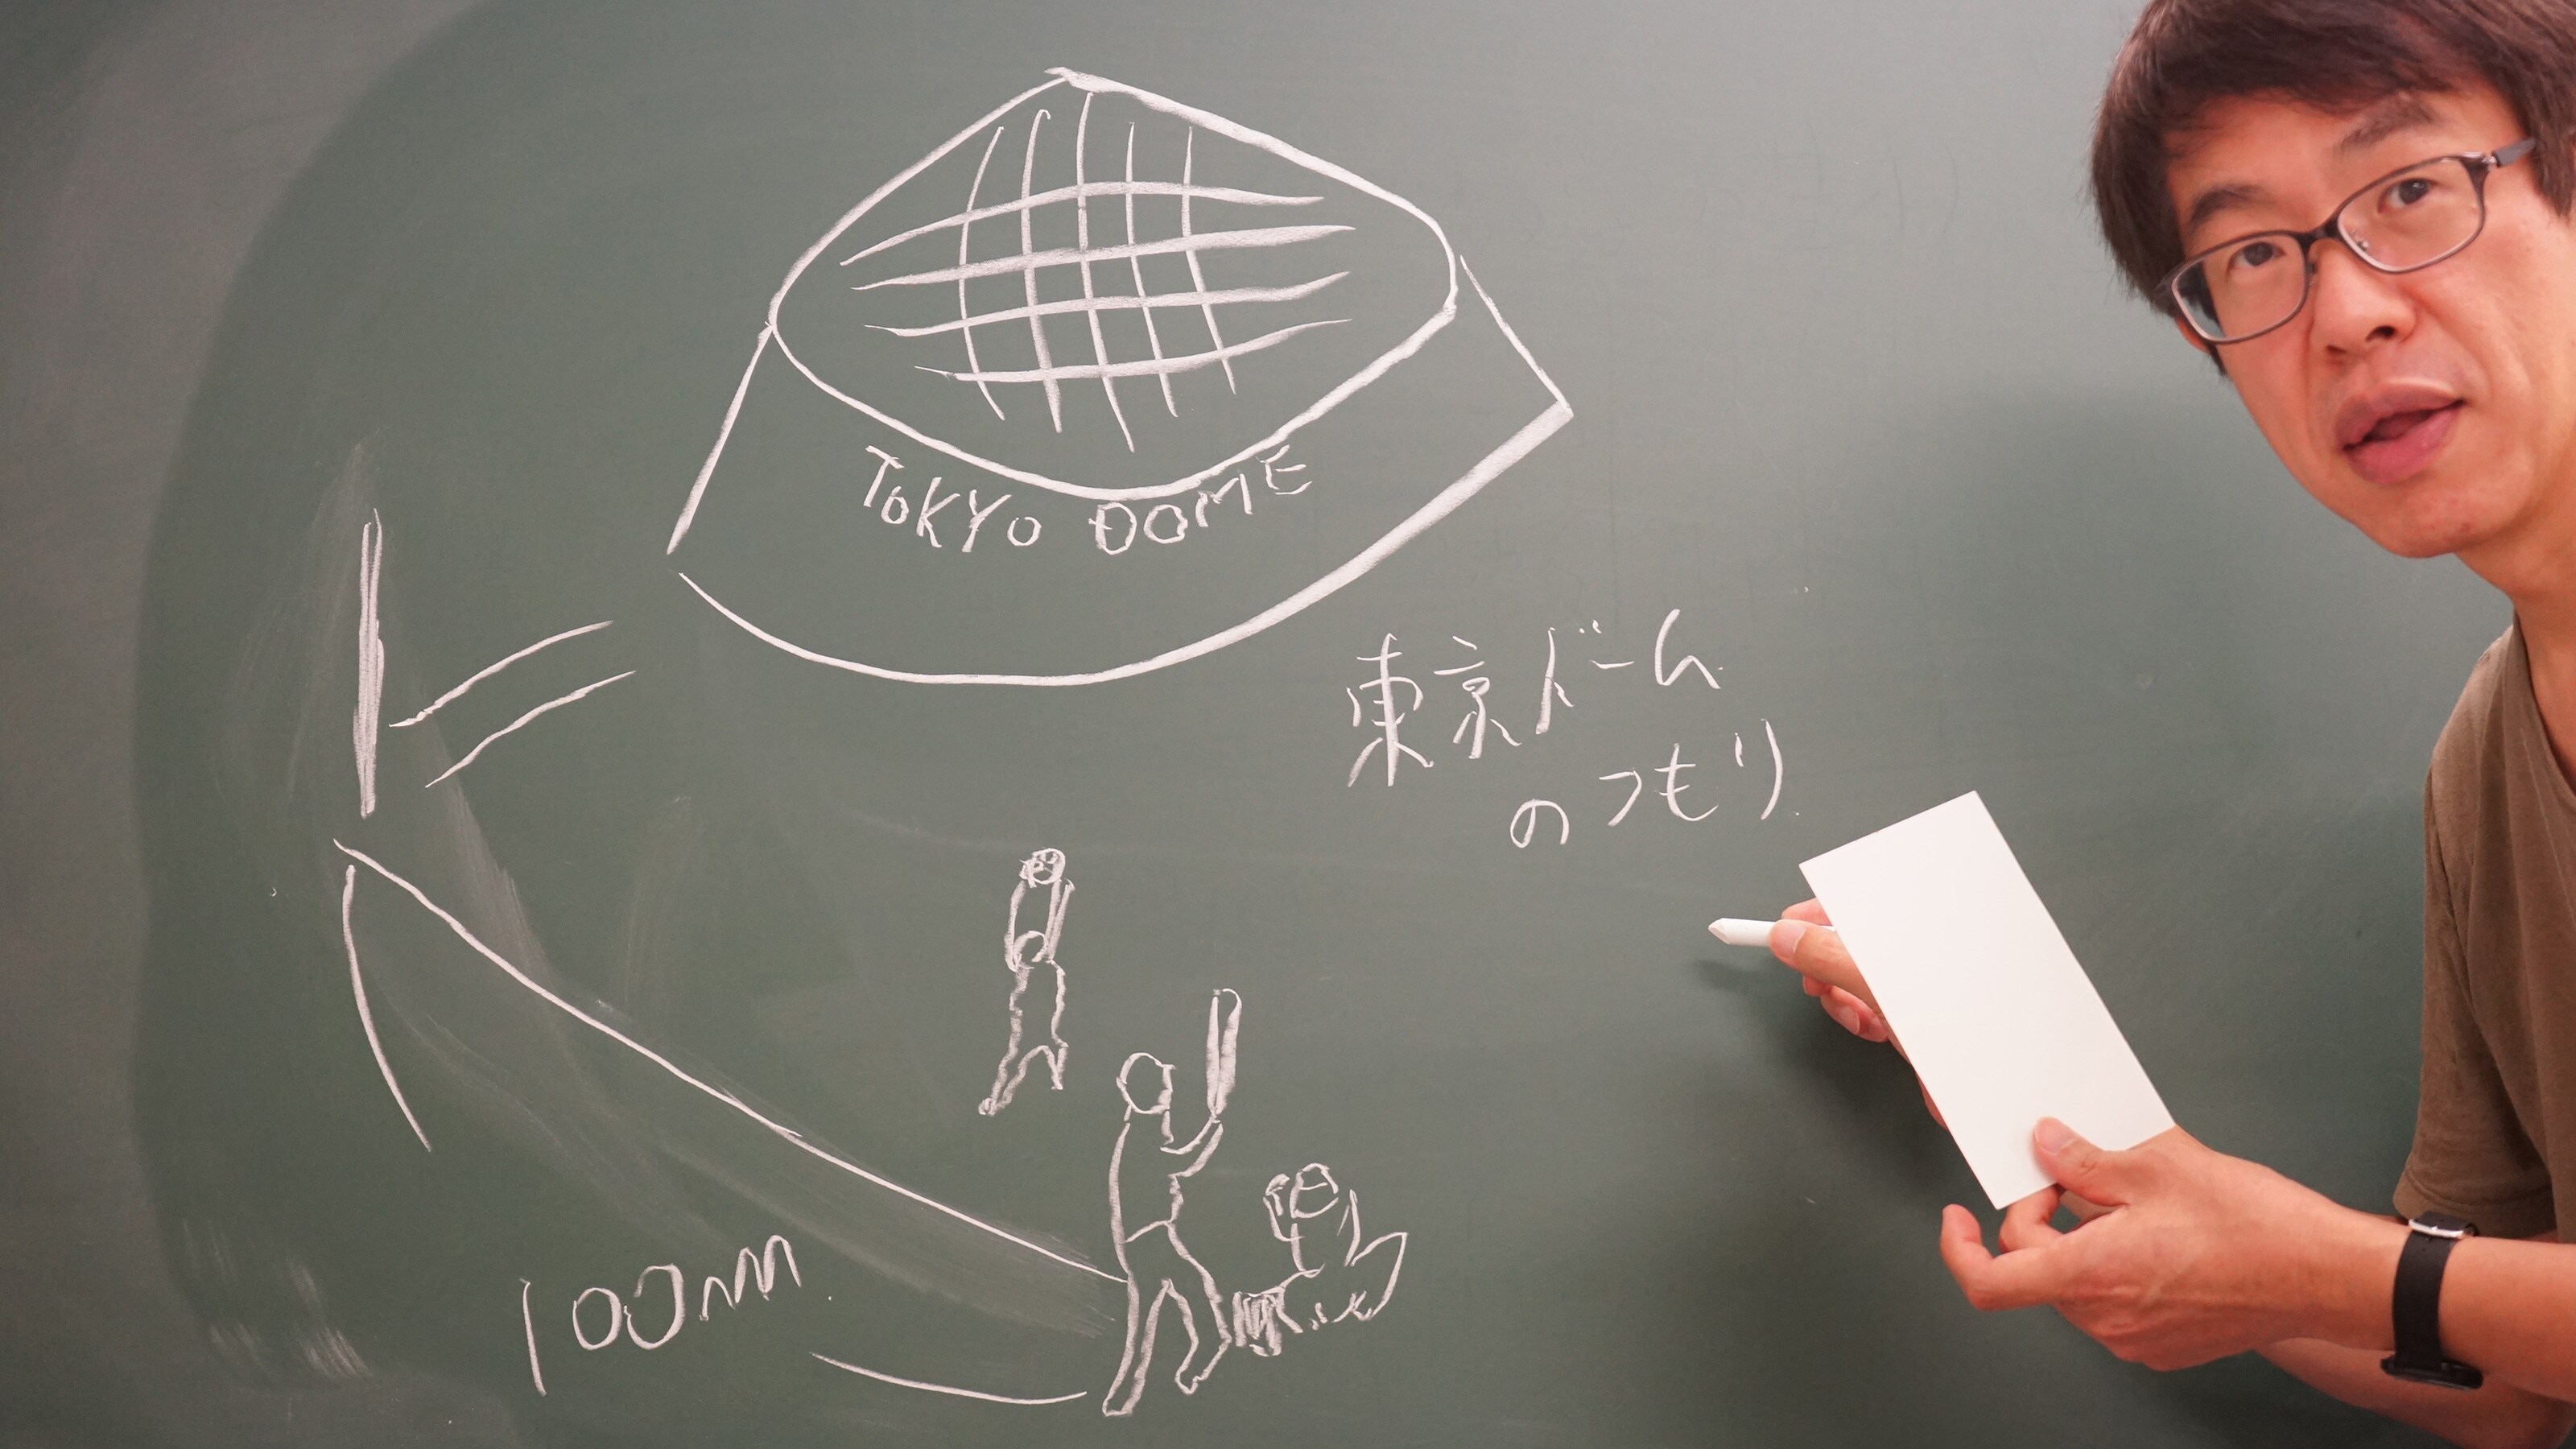 TOKYO DOME
東京ドーム
のつもり
100m